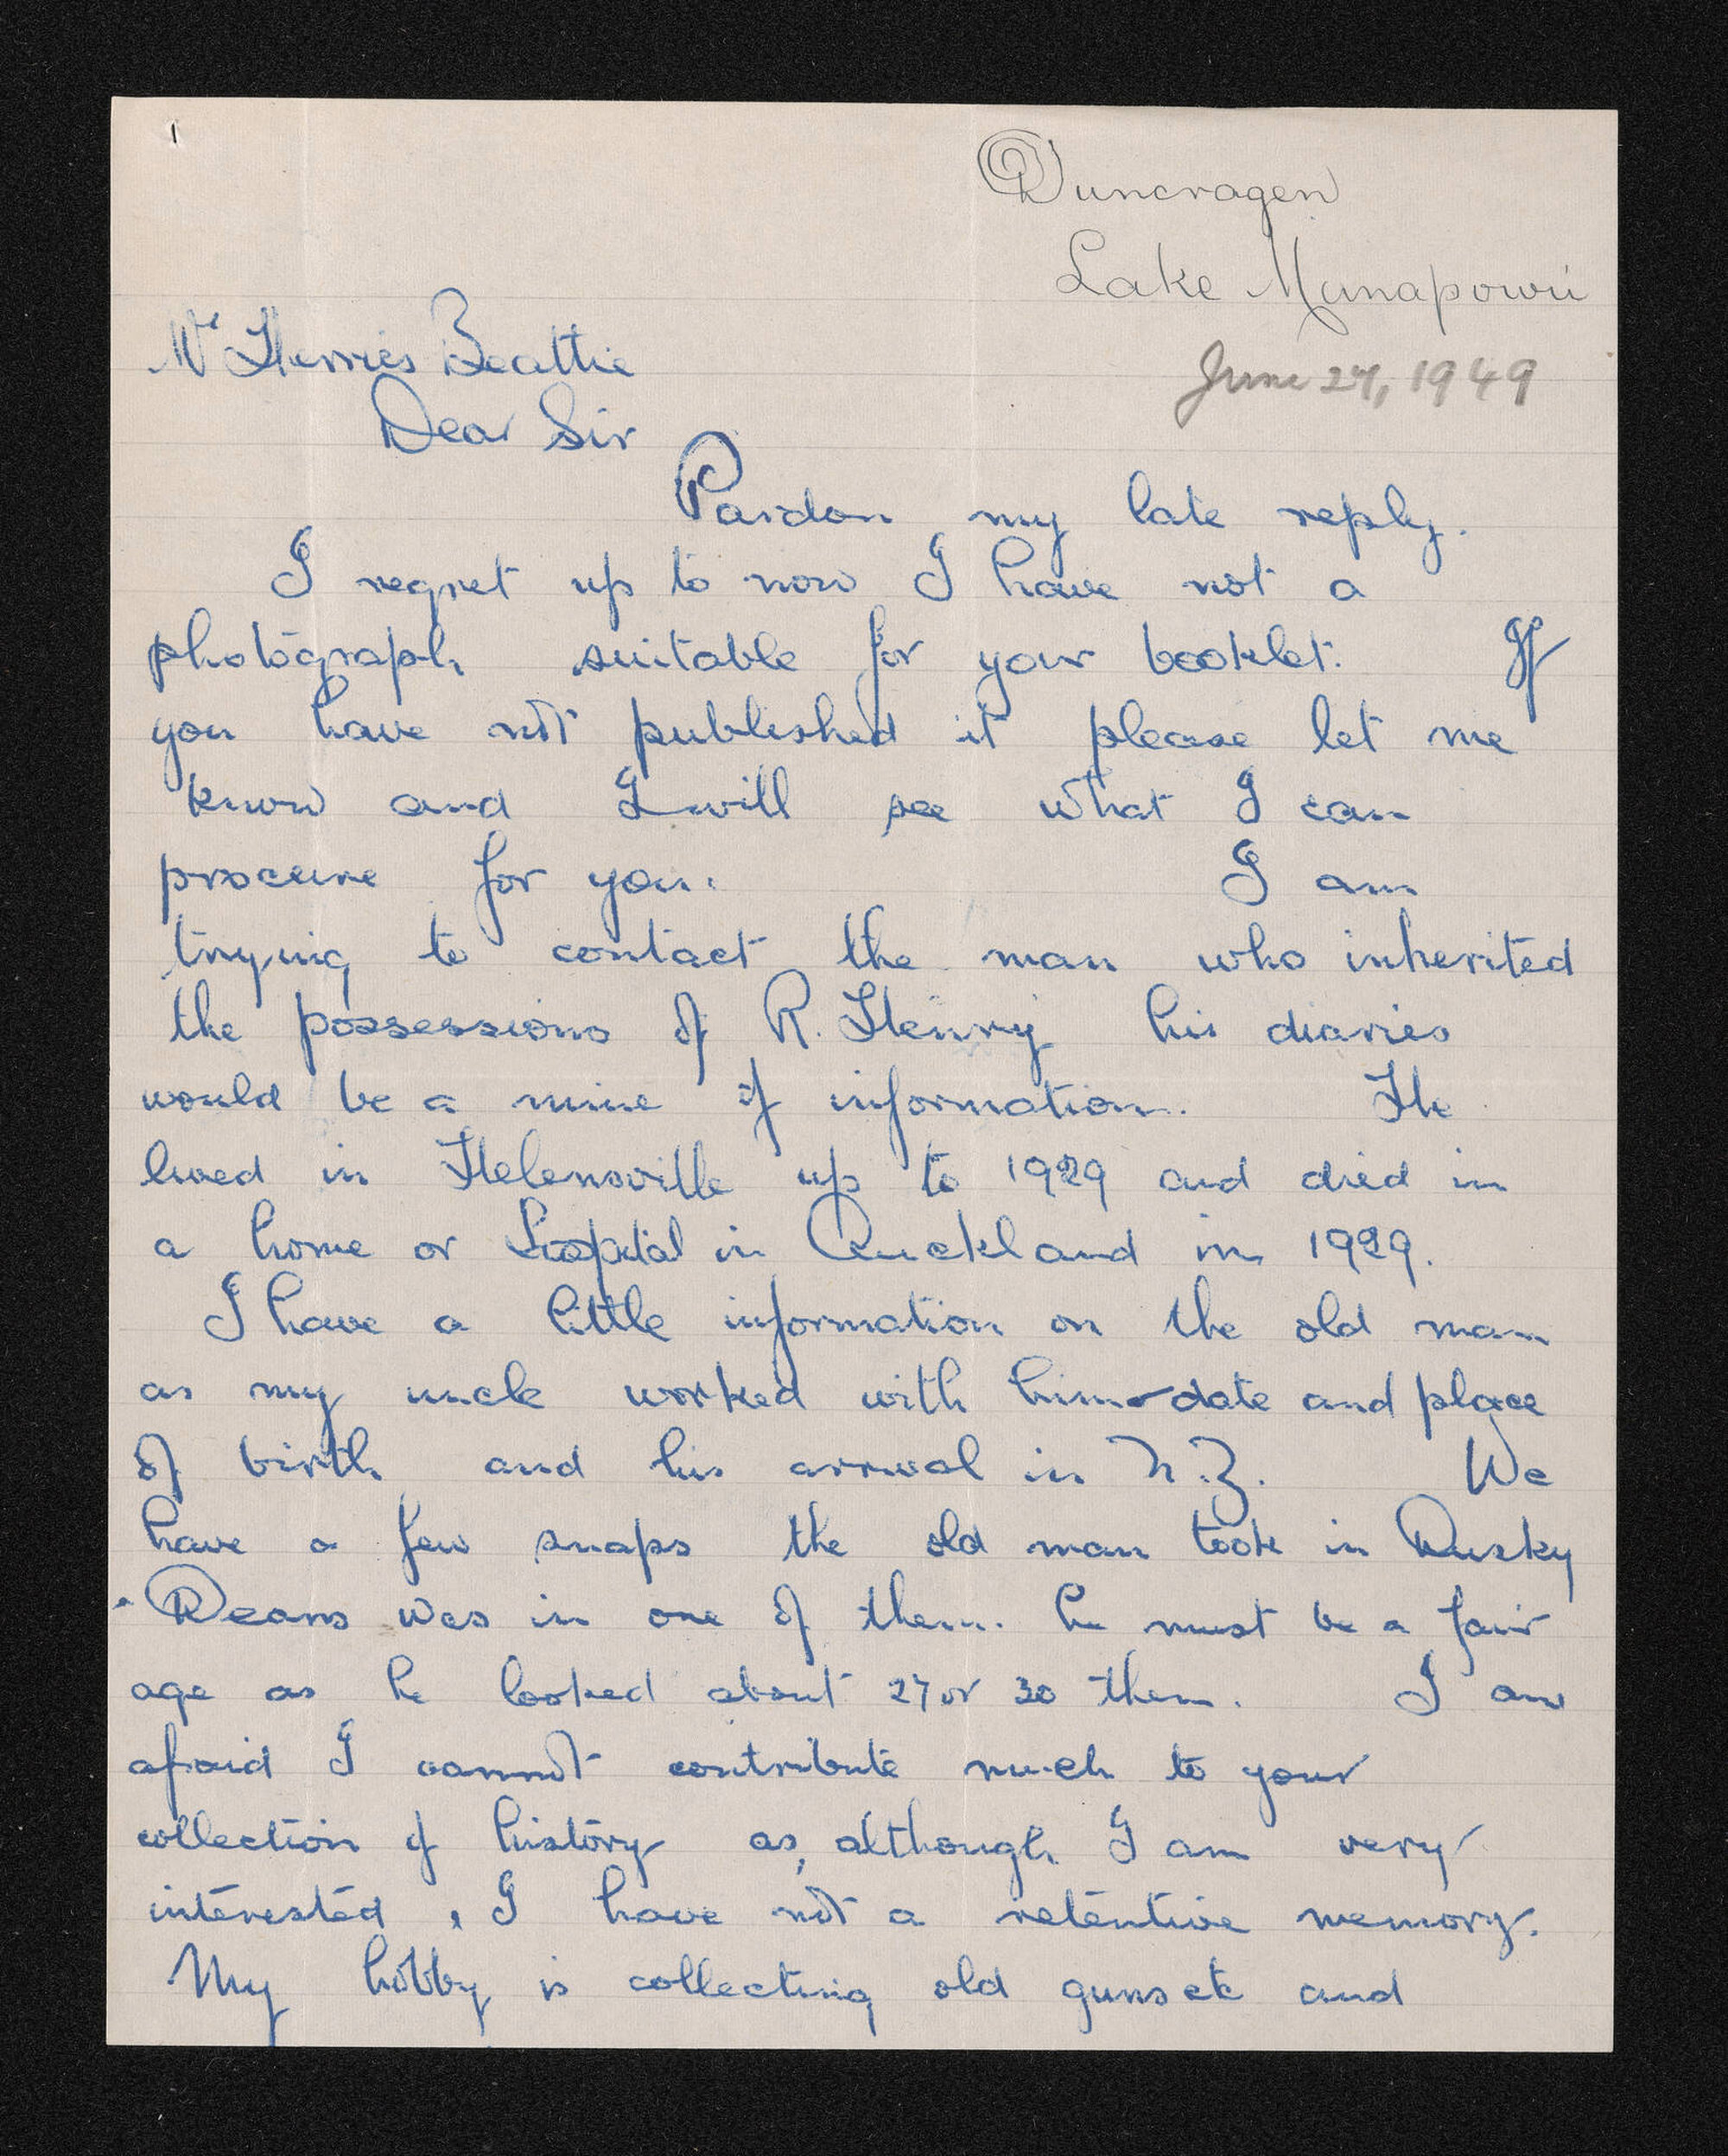 Duncragen
Lake Manapouri
June 27, 1949
Mr Herries Beattie
Dear Sir
Pardon my late reply.
I regret up to now I have not a
photograph suitable for your booklet. If
you have not published it please let me
know and I will see what I can
procure for you. I am
trying to contact the man who inherited
the possessions of R. Henry his diaries
would be a mine of information. He
lived in Helensville up to 1929 and died in
a home or Hospital in Auckland in 1929.
I have a little information on the old man
as my uncle worked with him - date and place
of birth and his arrival in N.Z. We
have a few snaps the old man took in Dusky
Deans was in one of them. he must be a fair
age as he looked about 27 or 30 then. I am
afraid I cannot contribute much to your
collection of history as, although I am very
interested, I have not a retentive memory.
My hobby is collecting old guns etc and